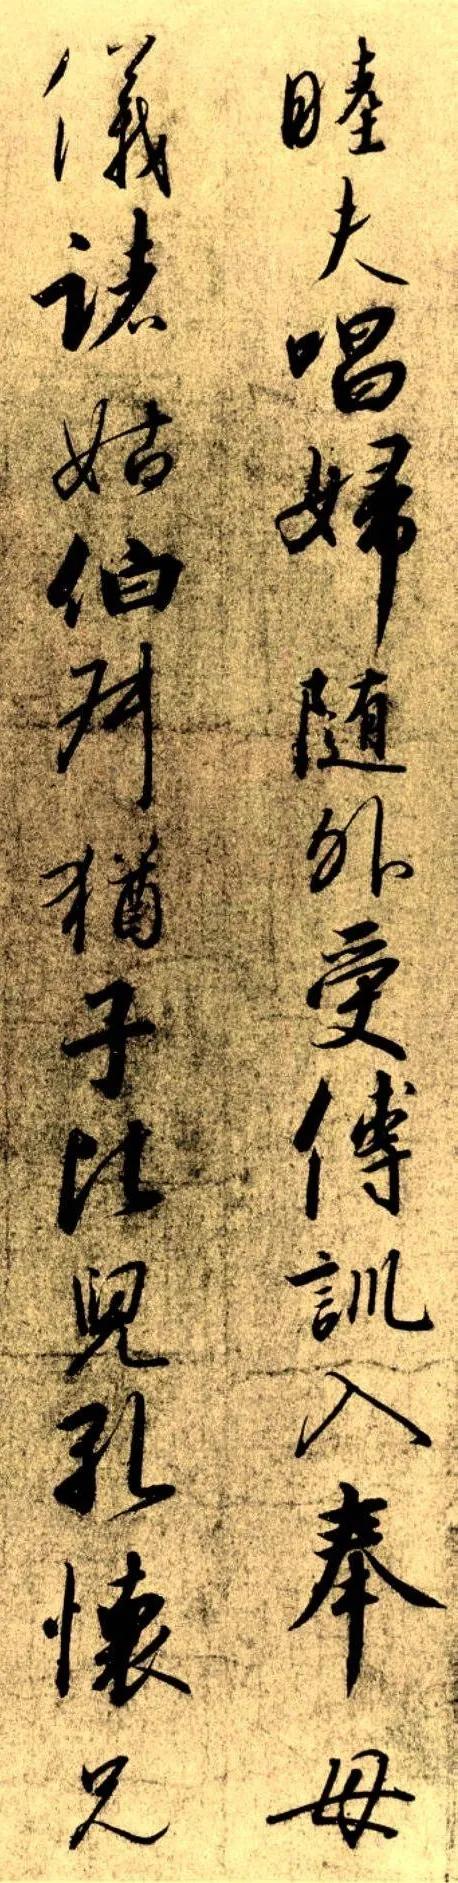 睦夫唱婦随外受傅訓入奉母
儀諸姑伯叔猶子比兒孔懷兄